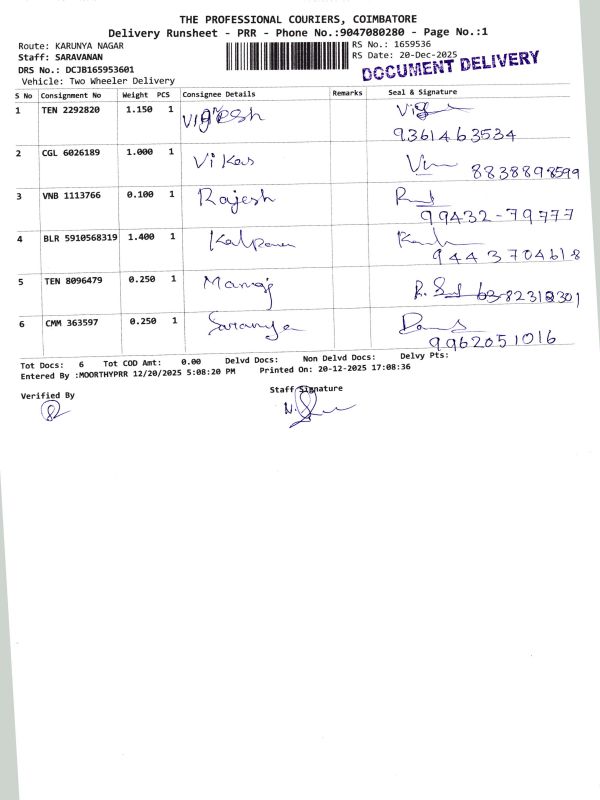 THE PROFESSIONAL COURIERS, COIMBATORE
Delivery Runsheet - PRR - Phone No.:9047080280 - Page No.:1
Route: KARUNYA NAGAR RS No.: 1659536
Staff: SARAVANAN RS Date: 20-Dec-2025
DRS No.: DCJB165953601 DOCUMENT DELIVERY
Vehicle: Two Wheeler Delivery
S No Consignment No Weight PCS Consignee Details Remarks Seal & Signature
1 TEN 2292820 1.150 1 Vignesh
9361463534
2 CGL 6026189 1.000 1 Vikas 8838898599
3 VNB 1113766 0.100 1 Rajesh
99432-79777
4 BLR 5910568319 1.400 1 Kalpana
9443704618
5 TEN 8096479 0.250 1 Manoj 6382312301
6 CMM 363597 0.250 1 Saranya
9962051016
Tot Docs: 6 Tot COD Amt: 0.00 Delvd Docs: Non Delvd Docs: Delvy Pts:
Entered By :MOORTHYPRR 12/20/2025 5:08:20 PM Printed On: 20-12-2025 17:08:36
Verified By Staff Signature